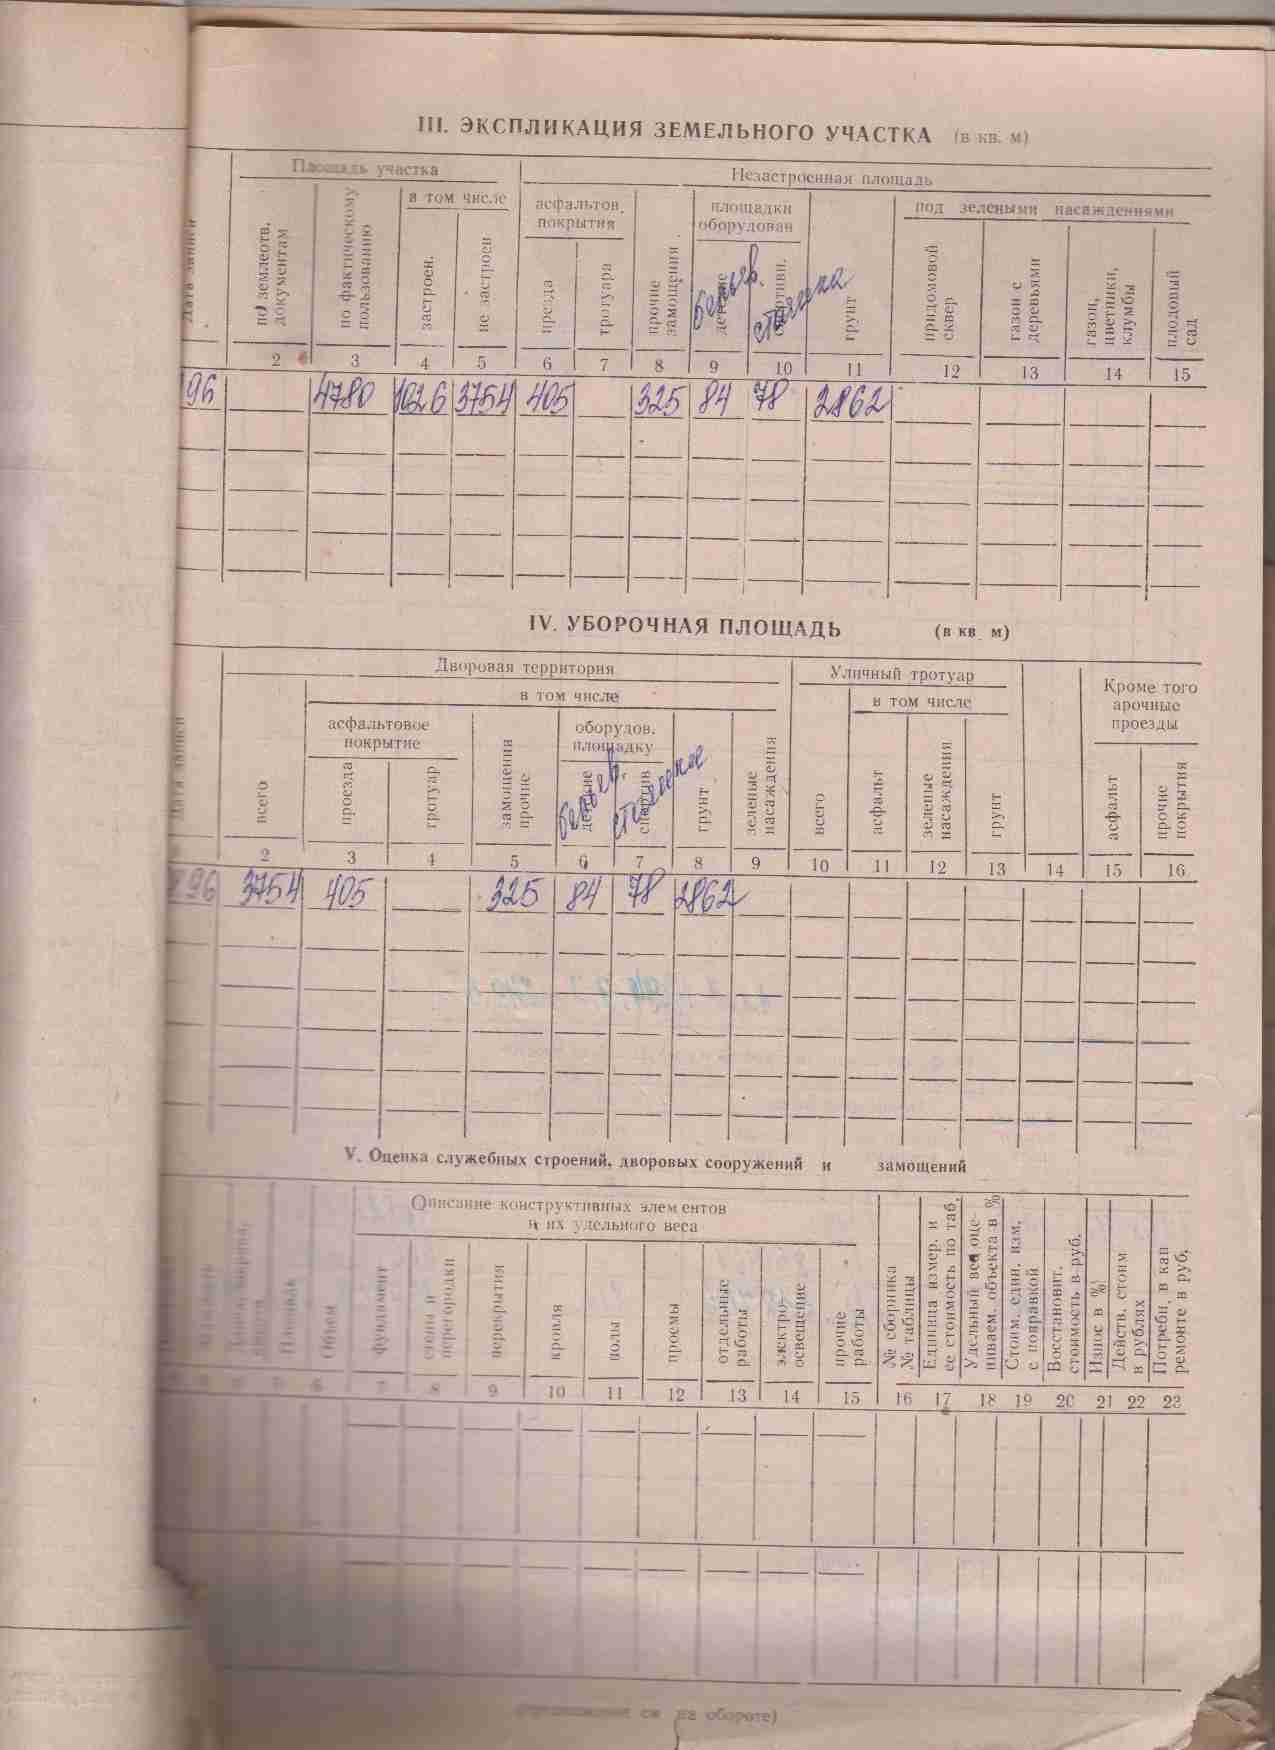 III. ЭКСПЛИКАЦИЯ ЗЕМЕЛЬНОГО УЧАСТКА (в кв. м)
Площадь участка
Незастроенная площадь
в том числе
асфальтов. покрытия
площадки оборудован
под зелеными насаждениями
Дата записи
по землеотв. документам
по фактическому пользованию
застроен.
не застроен
проезда
тротуара
прочие замощения
детские
спортивн.
грунт
придомовой сквер
газон с деревьями
газон, цветники, клумбы
плодовый сад
2 3 4 5 6 7 8 9 10 11 12 13 14 15
96 4780 1026 3754 405 325 84 78 2862
IV. УБОРОЧНАЯ ПЛОЩАДЬ (в кв. м)
Дворовая территория
Уличный тротуар
Кроме того арочные проезды
в том числе
в том числе
асфальтовое покрытие
оборудов. площадку
Дата записи
всего
проезда
тротуар
замощения прочие
детские
спортив
грунт
зеленые насаждения
всего
асфальт
зеленые насаждения
грунт
асфальт
прочие покрытия
2 3 4 5 6 7 8 9 10 11 12 13 14 15 16
96 3754 405 325 84 78 2862
V. Оценка служебных строений, дворовых сооружений и замощений
Описание конструктивных элементов
и их удельного веса
Площадь
Объем
фундамент
стены и перегородки
перекрытия
кровля
полы
проемы
отдельные работы
электро-освещение
прочие работы
№ сборника № таблицы
Единица измер. и ее стоимость по таб.
Удельный вес оце-ниваем. объекта в %
Стоим. един. изм. с поправкой
Восстановит. стоимость в руб.
Износ в %
Действ. стоим в рублях
Потребн. в кап ремонте в руб.
7 8 9 10 11 12 13 14 15 16 17 18 19 20 21 22 23
см на обороте)